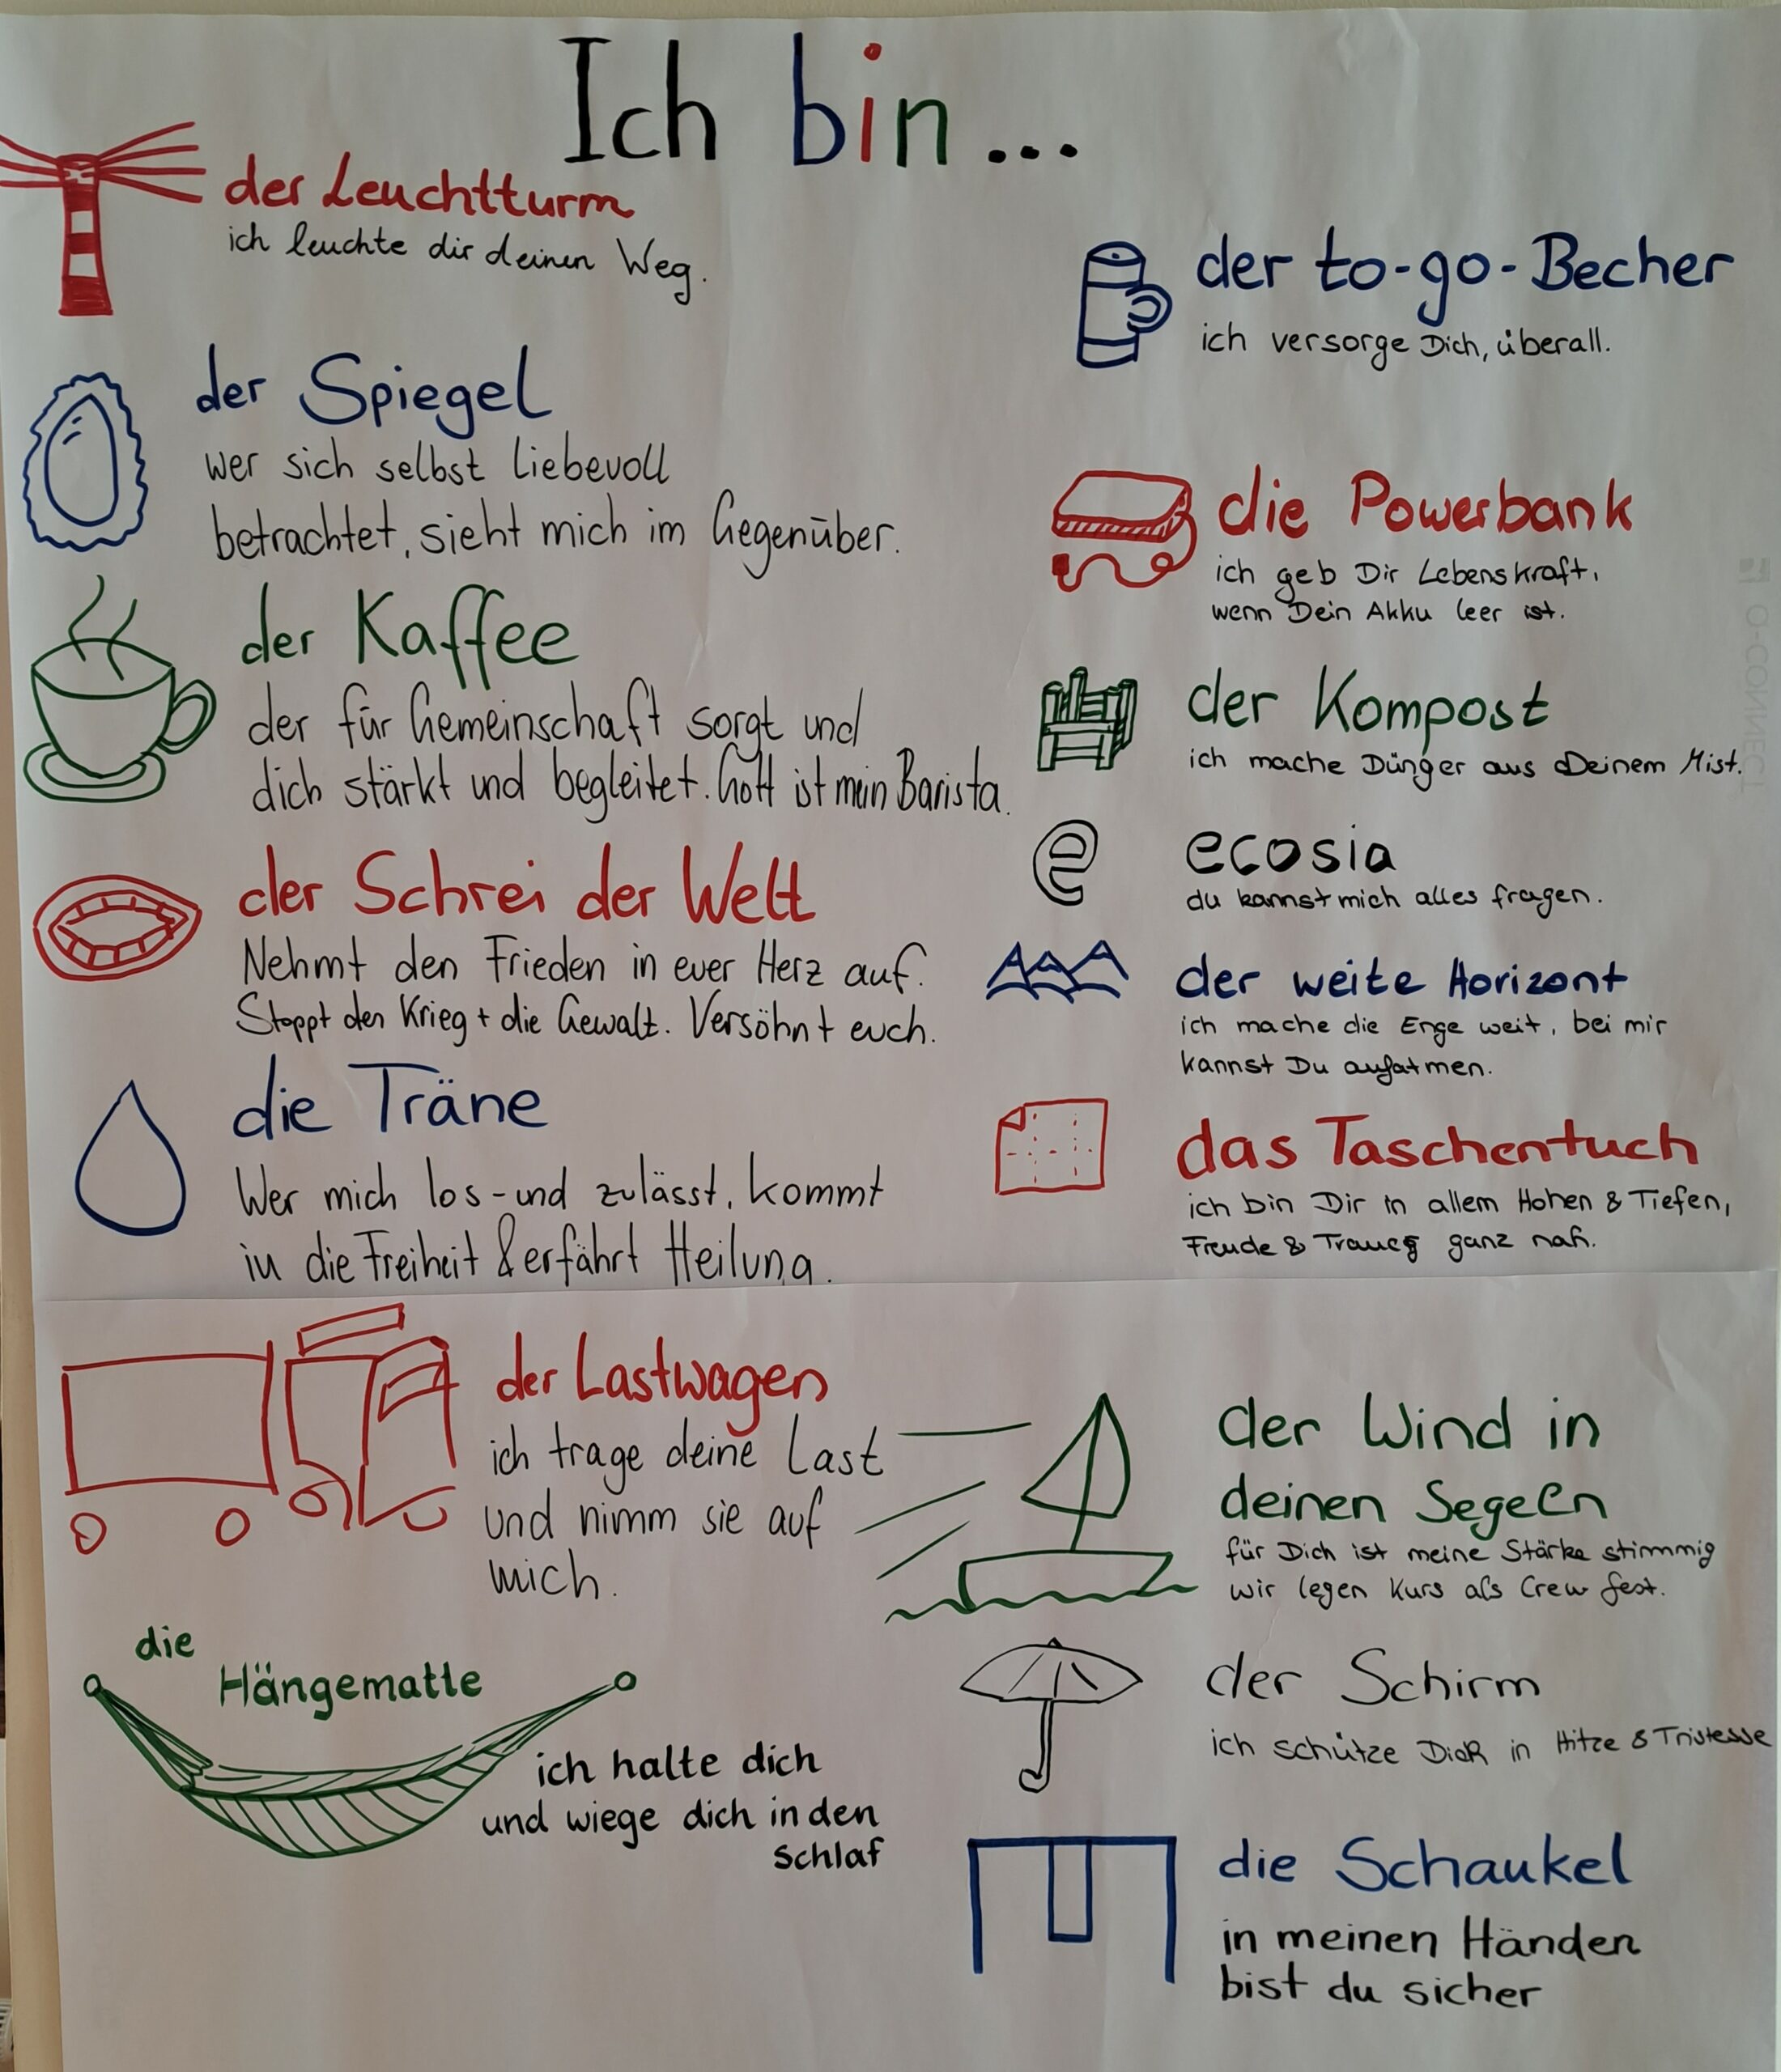 Ich bin...
der Leuchtturm
ich leuchte dir deinen Weg.
der Spiegel
wer sich selbst liebevoll
betrachtet, sieht mich im Gegenüber.
der Kaffee
der für Gemeinschaft sorgt und
dich stärkt und begleitet. Gott ist mein Barista.
der Schrei der Welt
Nehmt den Frieden in euer Herz auf.
Stoppt den Krieg + die Gewalt. Versöhnt euch.
die Träne
Wer mich los- und zulässt, kommt
in die Freiheit & erfährt Heilung.
der to-go-Becher
ich versorge Dich, überall.
die Powerbank
ich geb Dir Lebenskraft,
wenn Dein Akku leer ist.
der Kompost
ich mache Dünger aus Deinem Mist.
e ecosia
du kannst mich alles fragen.
der weite Horizont
ich mache die Enge weit, bei mir
kannst Du aufatmen.
das Taschentuch
ich bin Dir in allem Hohen & Tiefen,
Freude & Trauer ganz nah.
der Lastwagen
ich trage deine Last
und nimm sie auf
mich.
die
Hängematte
ich halte dich
und wiege dich in den
Schlaf
der Wind in
deinen Segeln
für Dich ist meine Stärke stimmig
wir legen Kurs als Crew fest.
der Schirm
ich schütze Dich in Hitze & Tristesse
die Schaukel
in meinen Händen
bist du sicher
O-CONNECT